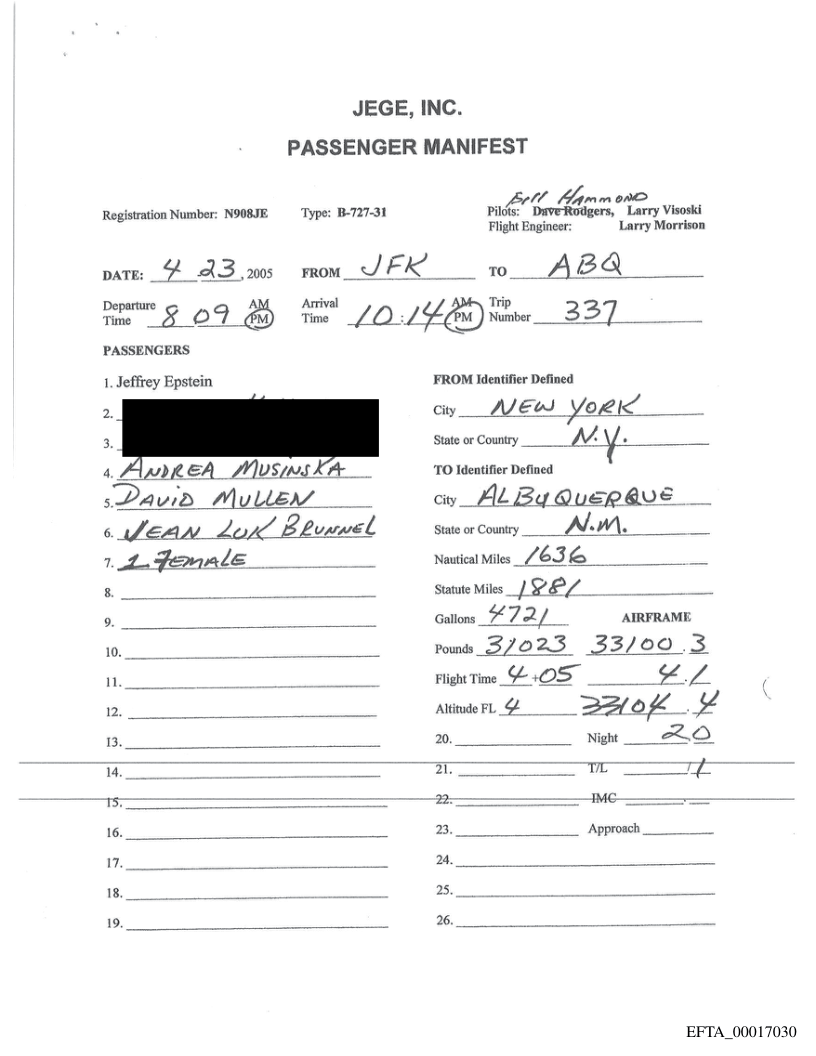 JEGE, INC.
PASSENGER MANIFEST
Bill Hammond
Registration Number: N908JE Type: B-727-31 Pilots: Dave Rodgers, Larry Visoski
Flight Engineer: Larry Morrison
DATE: 4 23, 2005 FROM JFK TO ABQ
Departure Time 8 09 AM PM Arrival Time 10:14 AM PM Trip Number 337
PASSENGERS
1. Jeffrey Epstein
2.
3.
4. ANDREA MUSINSKA
5. DAVID MULLEN
6. JEAN LUK BRUNNEL
7. 1 FEMALE
8.
9.
10.
11.
12.
13.
14.
15.
16.
17.
18.
19.
FROM Identifier Defined
City NEW YORK
State or Country N.Y.
TO Identifier Defined
City ALBUQUERQUE
State or Country N.M.
Nautical Miles 1636
Statute Miles 1881
Gallons 4721 AIRFRAME
Pounds 31023 33100.3
Flight Time 4+05 4.1
Altitude FL 4 33104.4
20. Night 2.0
21. T/L 1/1
22. IMC .
23. Approach
24.
25.
26.
EFTA_00017030